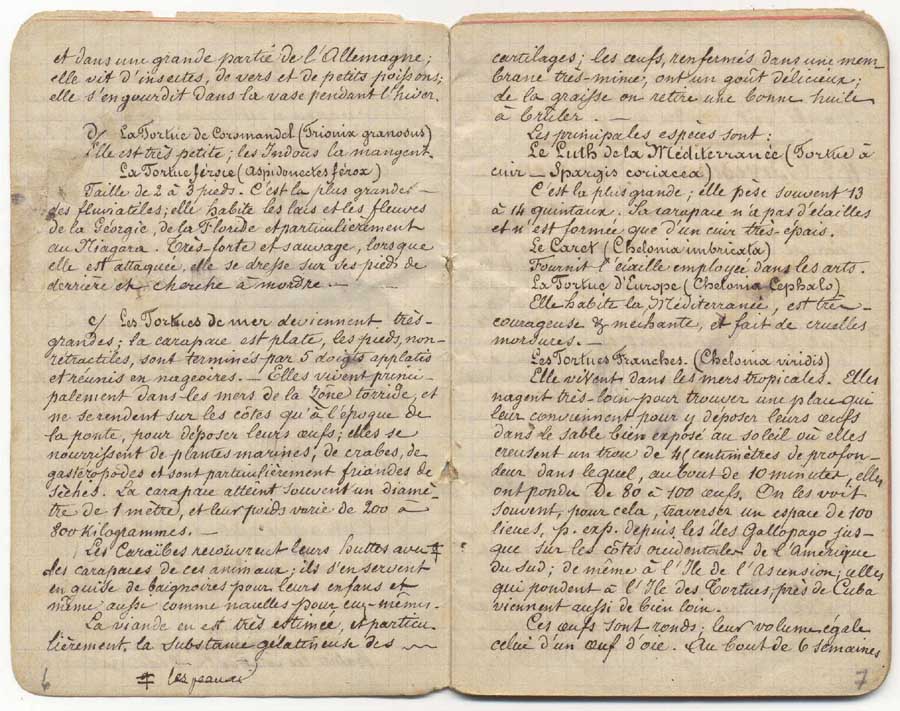 et dans une grande partie de l'Allemagne;
elle vit d'insectes, de vers et de petits poissons;
elle s'engourdit dans la vase pendant l'hiver.
d/ La Tortue de Coromandel (Trionix granosus)
Elle est très petite; les Indous la mangent.
La Tortue féroce (Aspidonectes férox)
Taille de 2 à 3 pieds. C'est la plus grande —
des fluviatiles; elle habite les lais et les fleuves
de la Géorgie, de la Floride et particulièrement
au Niagara. Très-forte et sauvage, lorsque
elle est attaquée, elle se dresse sur ses pieds de
derrière et cherche à mordre. —
e/ Les Tortues de mer deviennent très-
grandes; la carapace est plate, les pieds, non-
rétractiles, sont terminés par 5 doigts applatis
et réunis en nageoires. — Elles vivent princi-
palement dans les mers de la Zône torride, et
ne se rendent sur les côtes qu'à l'époque de
la ponte, pour déposer leurs œufs; elles se
nourrissent de plantes marines, de crabes, de
gastéropodes et sont particulièrement friandes de
sèches. La carapace atteint souvent un diamè-
tre de 1 mètre, et leur poids varie de 200 à
800 Kilogrammes. —
Les Caraïbes recouvrent leurs huttes avec ǂ
des carapaces de ces animaux; ils s'en servent
en guise de baignoires pour leurs enfans et
même aussi comme nacelles pour eux-mêmes.
La viande en est très estimée, et particu-
lièrement, la substance gélatineuse des
ǂ les peaux
6
cartilages; les œufs, renfermés dans une mem-
brane très-mince, ont un goût délicieux;
de la graisse on retire une bonne huile
à brûler. —
Les principales espèces sont:
Le Luth de la Méditerranée (Tortue à
cuir — Spargis coriacea)
C'est la plus grande; elle pèse souvent 13
à 14 quintaux. Sa carapace n'a pas d'écailles
et n'est formée que d'un cuir très-épais.
Le Caret (Chelonia imbricata)
Fournit l'écaille employée dans les arts.
La Tortue d'Europe (Chelonia Cephalo)
Elle habite la Méditerranée, est très-
courageuse & méchante, et fait de cruelles
morsures. —
Les Tortues Franches. (Chelonia viridis)
Elle vivent dans les mers tropicales. Elles
nagent très-loin pour trouver une place qui
leur conviennent pour y déposer leurs œufs
dans le sable bien exposé au soleil où elles
creusent un trou de 4( centimètres de profon-
deur dans lequel, au bout de 10 minutes, elles
ont pondu de 80 à 100 œufs. On les voit
souvent, pour cela, traverser un espace de 100
lieues, p. exp. depuis les îles Gallopago jus-
que sur les côtes occidentales de l'Amérique
du Sud; de même à l'Ile de l'Ascension; elles
qui pondent à l'Ile des Tortues, près de Cuba
viennent aussi de bien loin.
Ces œufs sont ronds; leur volume égale
celui d'un œuf d'oie. Au bout de 6 semaines
7